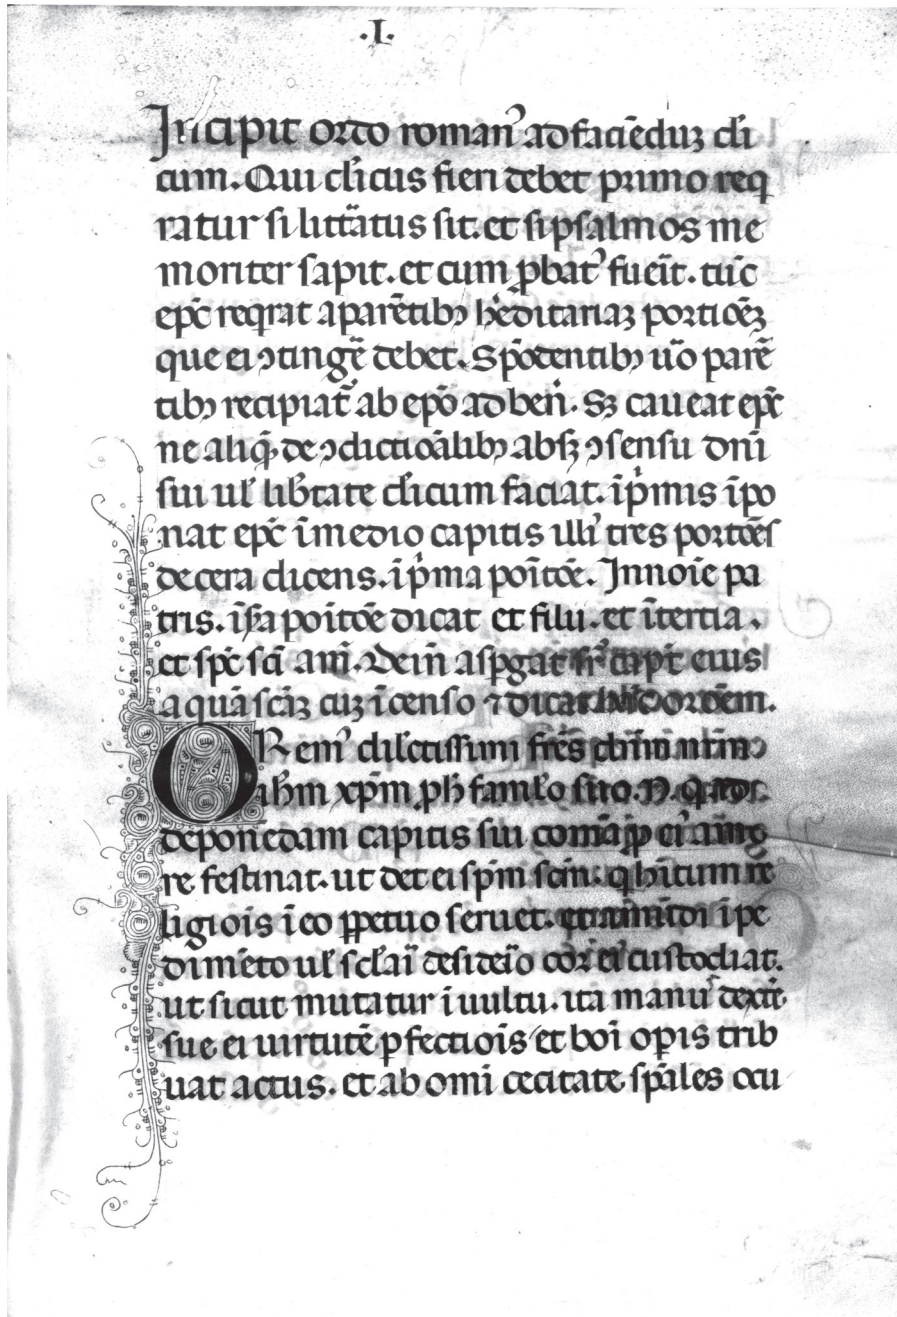 .I.
Incipit ordo roman᾽ ad faciēduʒ cl̄i
cum. Qui cl̄icus fieri debet primo req
ratur si litt̄atus sit. et si psalmos me
moriter sapit. et cum ꝓbat᾽ fuēit. tūc
ep̄c reqrat a parētibꝫ h̄editariaʒ portiōēʒ
que ei ↄtingē debet. Spōdentibꝫ ūo parē
tibꝫ recipiat᷑ ab ep̄o ad ben̄. Sʒ caueat ep̄c
ne aliq̄ de ↄdictiōalibꝫ absqꝫ ↄsensu dn̄i
sui ul̄ lib̄tate cl̄icum faciat. īp̄mis īpo
nat ep̄c ī medio capitis illi᾽ tres portōēs
de cera dicens. ī p̄ma poītōe. In noīe pa
tris. ī s̄a poītōe dicat et filii. et ī tertia.
et sp̄c sc̄i am̄. Dein̄ asꝑgat sr̄ cap̄t eius
aquā sc̄āʒ cuʒ īcenso ⁊ dicat ordēm.
ORem᾽ dil̄ctissimi fr̄es dn̄m nr̄m
ih̄m xp̄m ꝓ h̄ famlo suo. N. q̄
deponēdam capitis sui comā ꝓ ei᾽ am̄
re festinat. ut det ei sp̄m sc̄m. q h̄itum re
ligiois ī eo ꝑpetuo seruet. et a mūdi īpe
dimēto ul̄ sc̄lai desidēio cor ei᾽ custodiat.
ut sicut mutatur ī uultu. ita manu᾽ dext̄
sue ei uirtutē ꝑfectiois et boi oꝑis trib
uat actus. et ab omi cecitate sp̄ales ocu